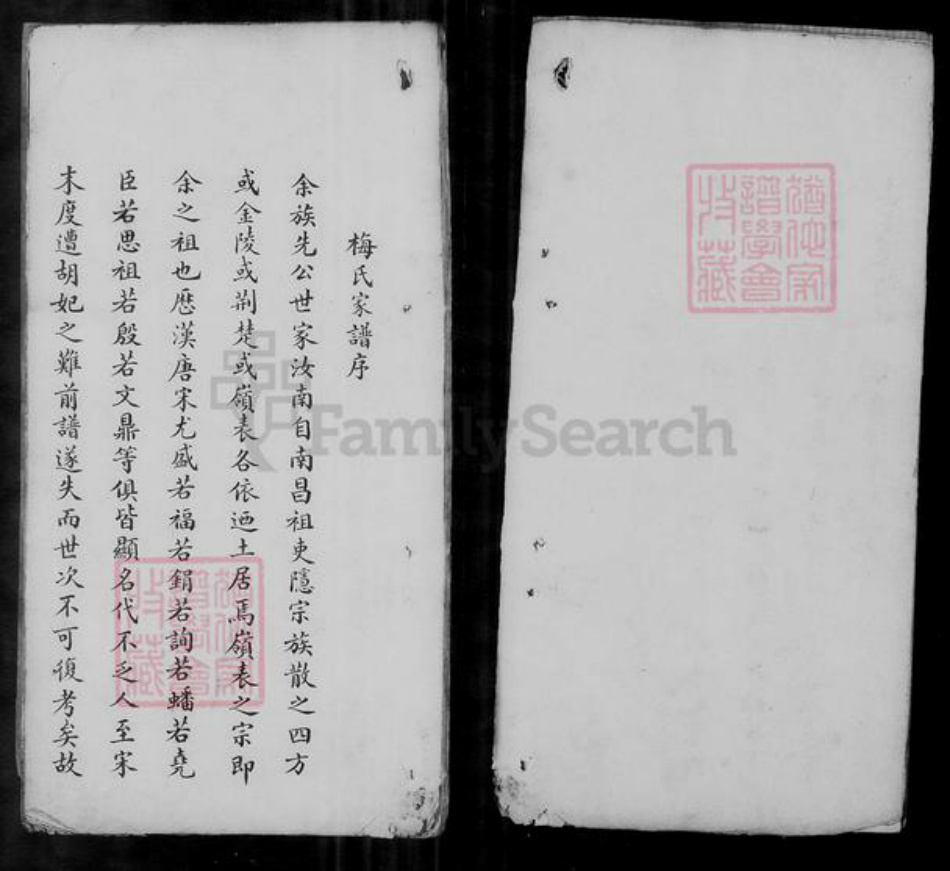 猶他家
譜學會
收藏
梅氏家譜序
余族先公世家汝南自南昌祖吏隱宗族散之四方
或金陵或荆楚或嶺表各依迺土居焉嶺表之宗即
余之祖也歷漢唐宋尤盛若福若鋗若詢若蟠若堯
臣若思祖若殷若文鼎等俱皆顯名代不乏人至宋
末度遭胡妃之難前譜遂失而世次不可復考矣故
猶他家
譜學會
收藏
FamilySearch